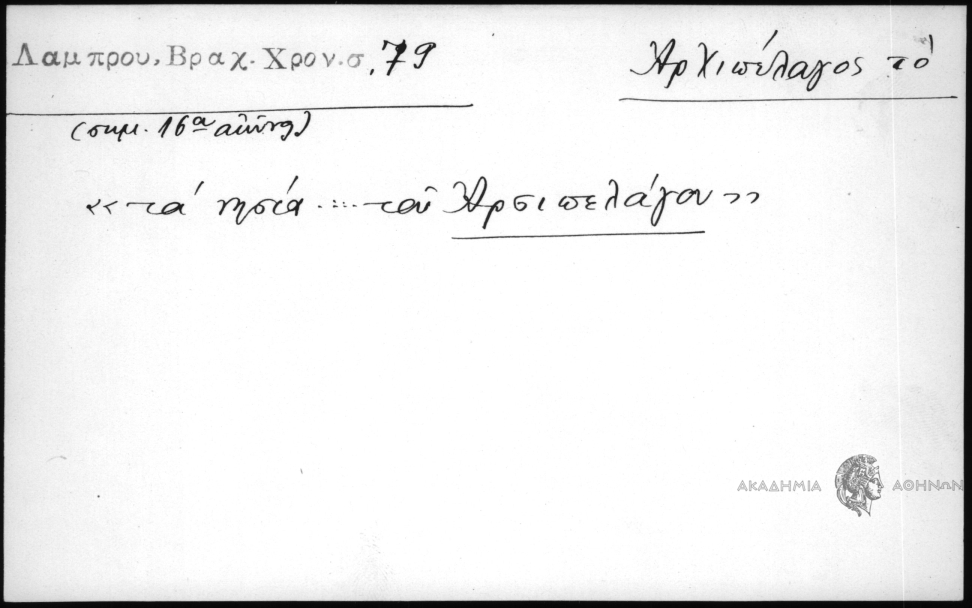 Λαμπρου, Βραχ. Χρον. σ. 79
Ἀρχιπέλαγος τὸ
(σημ. 16ου αἰῶνος)
«τά νησιά ..... τοῦ Ἀρσιπελάγου»
ΑΚΑΔΗΜΙΑ ΑΘΗΝΩΝ